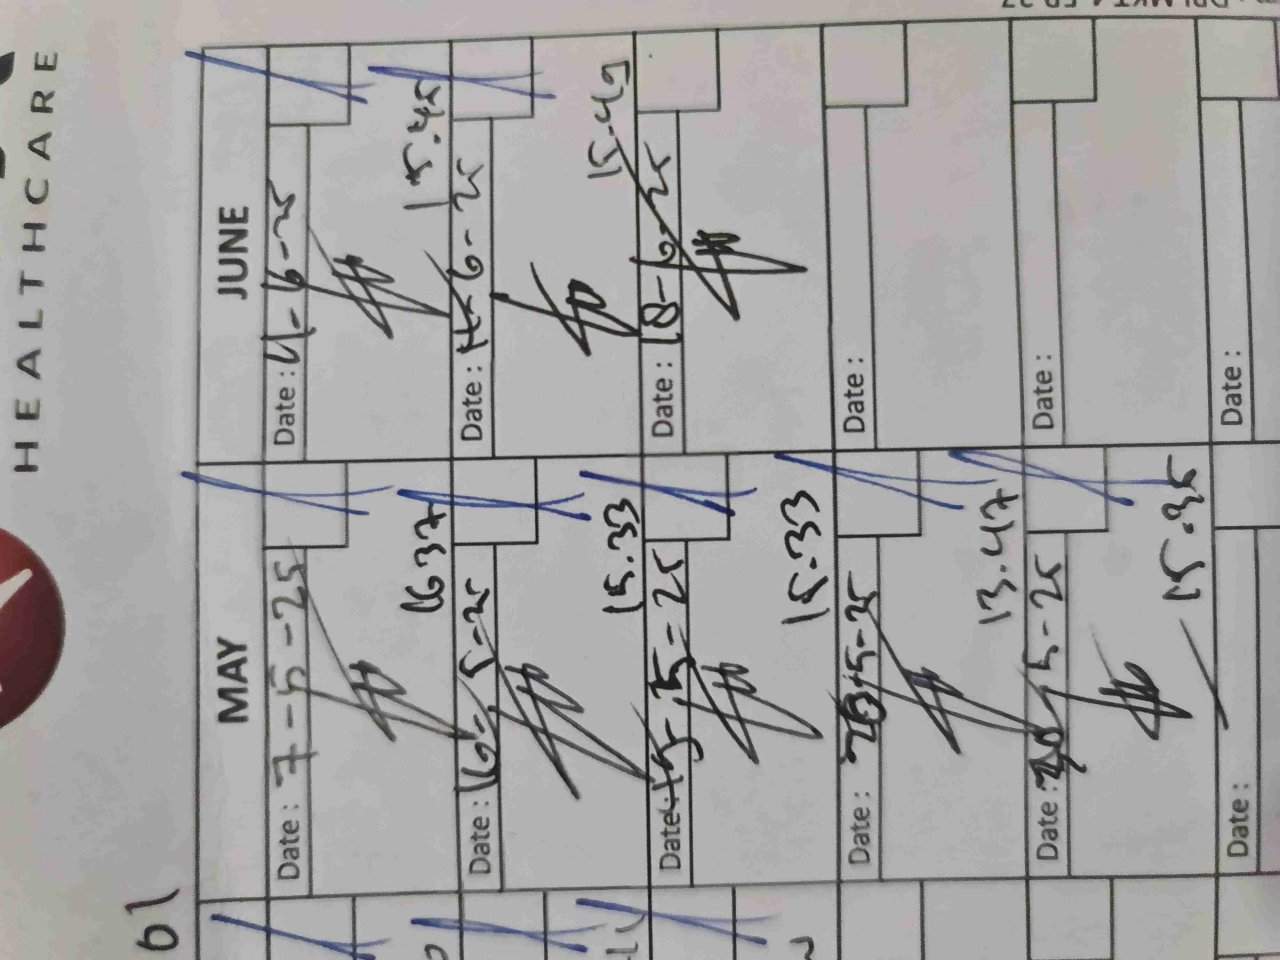 HEALTHCARE
MAY
JUNE
Date : 7-5-25
Date : 4-6-25
1637
15.45
Date : 16-5-25
Date : 11-6-25
15.33
15.49
Date : 15-5-25
Date : 18-6-25
15.33
Date : 5-25
Date :
13.47
Date : 5-25
Date :
15.35
Date :
Date :